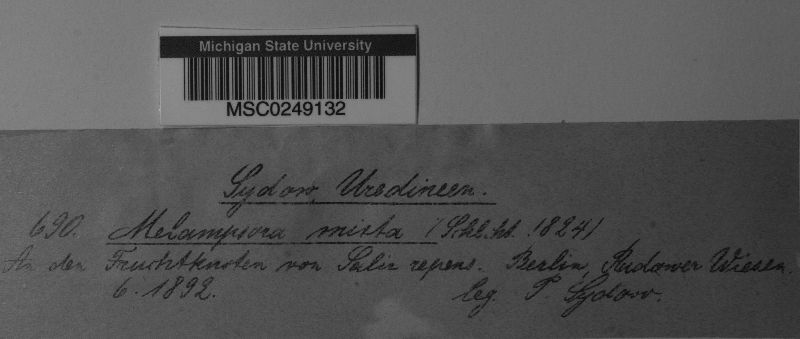 Michigan State University
MSC0249132
Sydow, Uredineen.
690. Melampsora mixta (Schlcht. 1824)
An den Fruchtknoten von Salix repens. Berlin, Rudower Wiesen.
6. 1892. leg. P. Sydow.